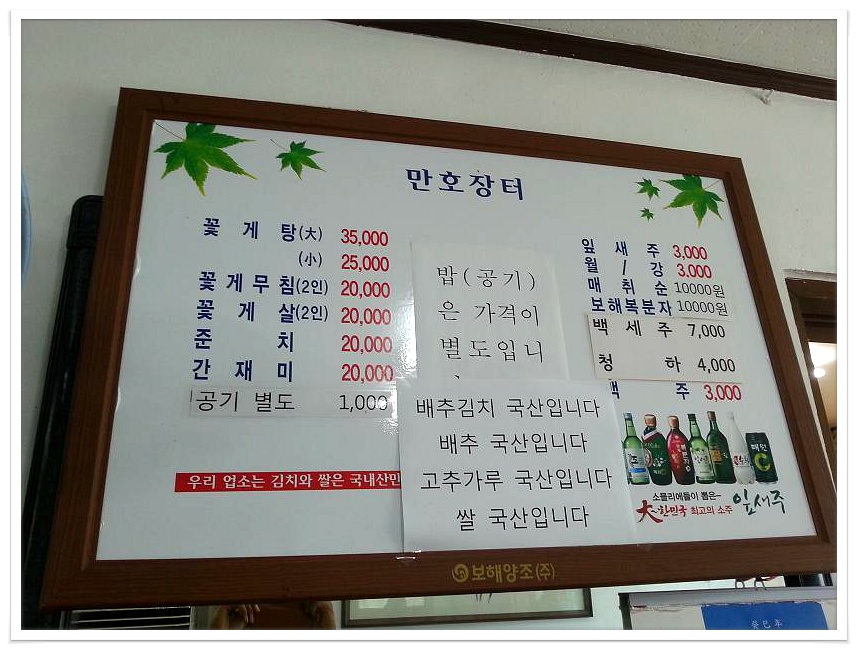 만호장터
꽃게탕(大) 35,000
(小) 25,000
꽃게무침(2인) 20,000
꽃게살(2인) 20,000
준치 20,000
간재미 20,000
공기 별도 1,000
우리 업소는 김치와 쌀은 국내산만
밥(공기)
은 가격이
별도입니
배추김치 국산입니다
배추 국산입니다
고추가루 국산입니다
쌀 국산입니다
잎새주 3,000
월/강 3,000
매취순 10000원
보해복분자 10000원
백세주 7,000
청하 4,000
맥주 3,000
소믈리에들이 뽑은~
大한민국 최고의 소주 잎새주
보해양조(주)
癸巳年